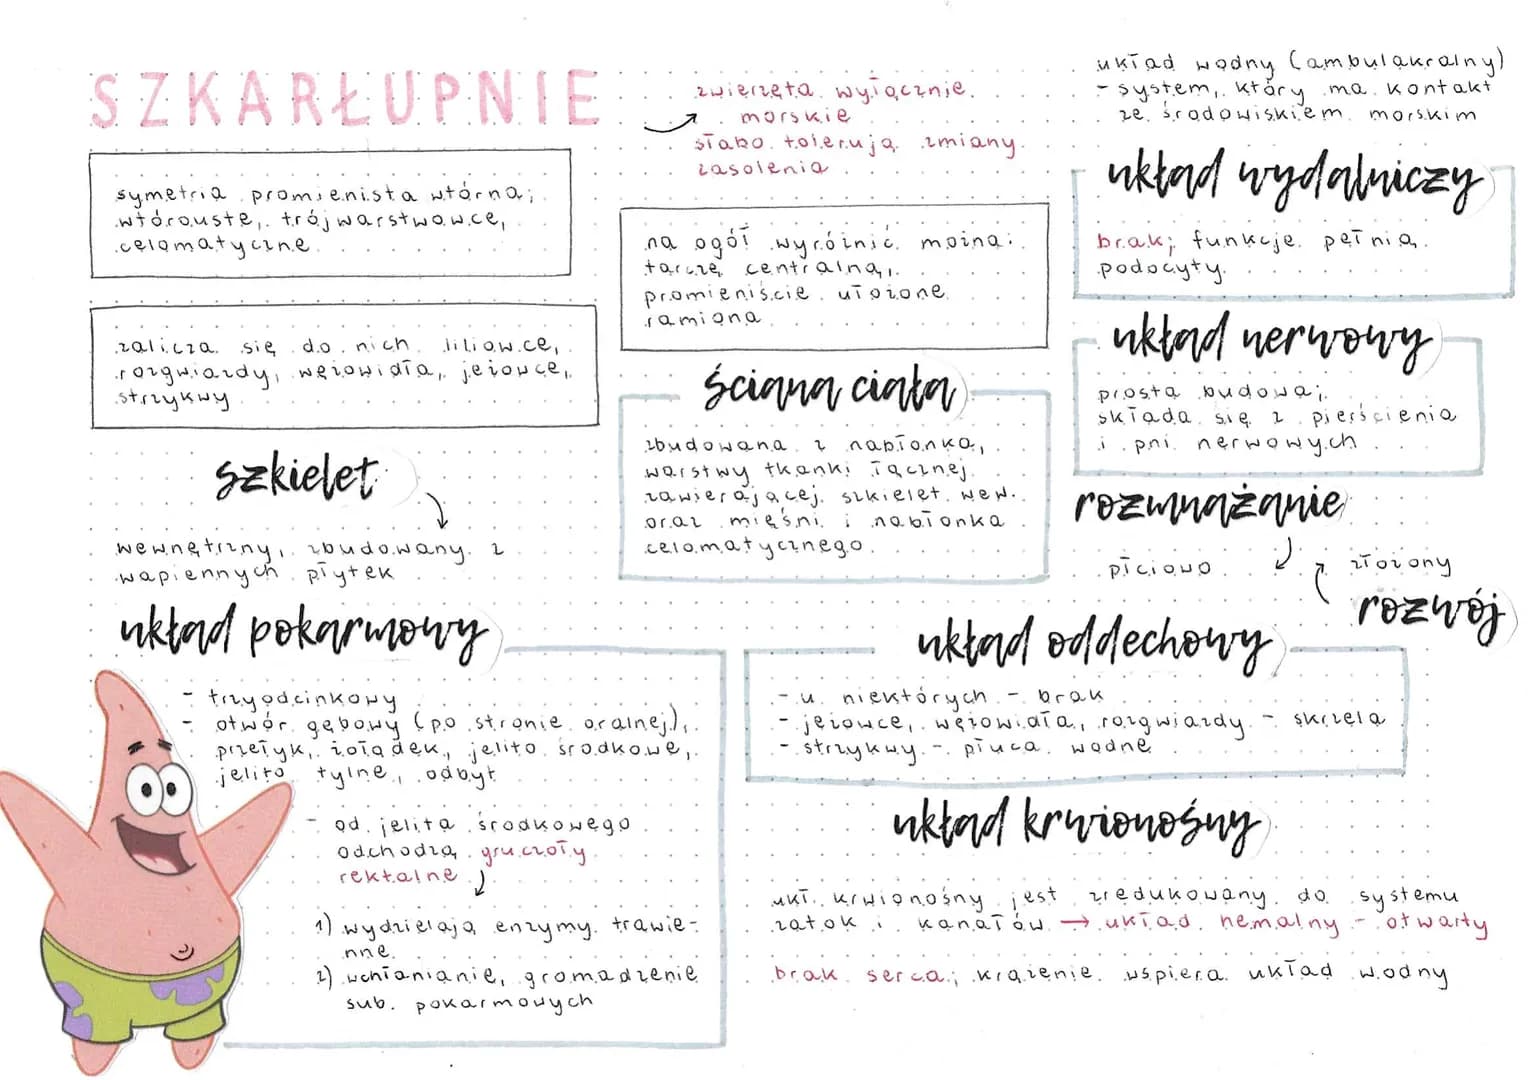 SZKARŁUPNIE
zwierzęta wyłącznie
morskie
słabo tolerują zmiany
zasolenia
symetria promienista wtórna;
wtórouste, trójwarstwowce,
celomatyczne
zalicza się do nich liliowce,
rozgwiazdy, wężowidła, jeżowce,
strzykwy
szkielet
wewnętrzny, zbudowany z
wapiennych płytek
układ pokarmowy
- trzyodcinkowy
- otwór gębowy (po stronie oralnej),
przełyk, żołądek, jelito środkowe,
jelito tylne, odbyt
- od jelita środkowego
odchodzą gruczoły
rektalne
1) wydzielają enzymy trawie-
nne
2) wchłanianie, gromadzenie
sub. pokarmowych
na ogół wyróżnić można:
tarczę centralną,
promieniście ułożone
ramiona
ściana ciała
zbudowana z nabłonka,
warstwy tkanki łącznej
zawierającej szkielet wew.
oraz mięśni i nabłonka
celomatycznego
układ wodny (ambulakralny)
- system, który ma kontakt
ze środowiskiem morskim
układ wydalniczy
brak; funkcje pełnią
podocyty
układ nerwowy
prosta budowa;
składa się z pierścienia
i pni nerwowych
rozmnażanie
płciowo
złożony
rozwój
układ oddechowy
- u niektórych - brak
- jeżowce, wężowidła, rozgwiazdy - skrzela
- strzykwy - płuca wodne
układ krwionośny
ukł. krwionośny jest zredukowany do systemu
zatok i kanałów → układ hemalny - otwarty
brak serca; krążenie wspiera układ wodny